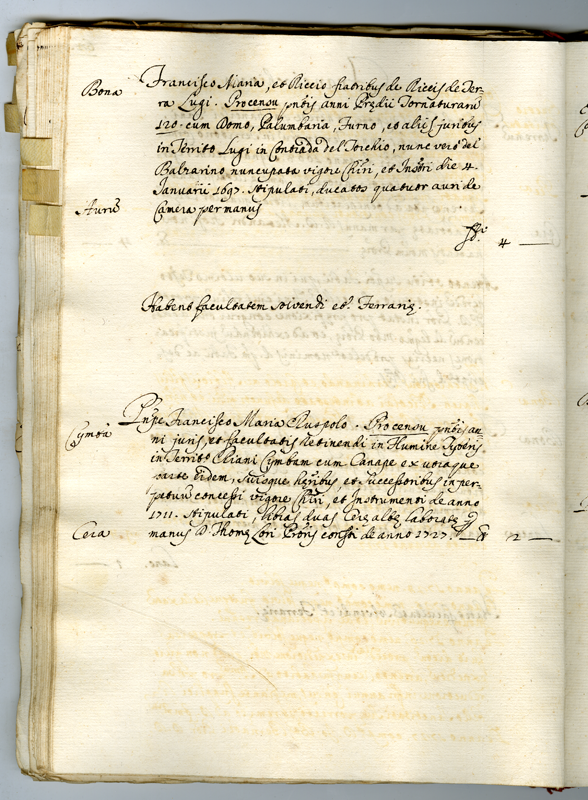 Bona
Francisco Maria, et Riccio fratribus de Riccis de Ter-
ra Lugi. Pro censu pñtis anni Prædii Tornaturarũ
120. cum Domo, Palumbaria, Furno, et aliis juribus
in Territo Lugi in Contrada del Torchio, nunc verò del
Balzarino nuncupata vigore Chiri, et Instri die 4.
Januarii 1697. Stipulati, ducatos quatuor auri de
Aurũ
Camera per manus
4 —
Habens facultatem solvendi etc. Ferrariæ.
Cymba
Pnpe Francisco Maria Ruspolo. Pro censu pñtis an-
ni juris, et facultatis retinendi in Flumine Tyberis
in Territo Cymbam cum Canape ex utraque
parte Eidem, suisque hæribus, et successoribus in per-
petuũ concessi vigore Chiri, et Instrumenti de anno
1711. Stipulati, libras duas Ceræ albæ laboratæ p
Cera
manus D. Thomæ Lori Proris consti de anno 1727. — 2 —